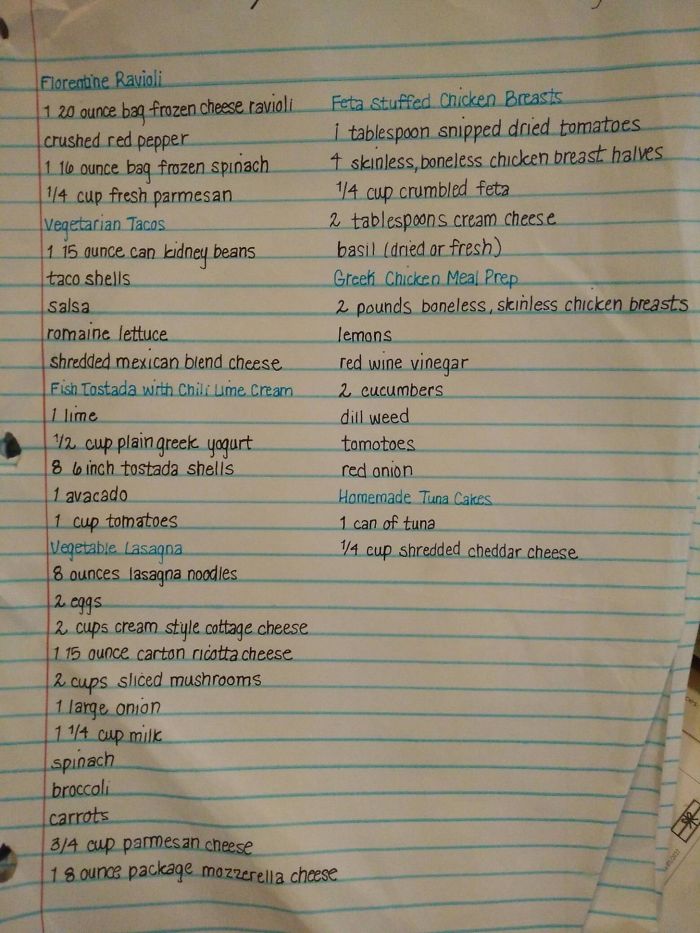 Florentine Ravioli
1 20 ounce bag frozen cheese ravioli
crushed red pepper
1 16 ounce bag frozen spinach
1/4 cup fresh parmesan
Vegetarian Tacos
1 15 ounce can kidney beans
taco shells
salsa
romaine lettuce
shredded mexican blend cheese
Fish Tostada with Chili Lime Cream
1 lime
1/2 cup plain greek yogurt
8 6 inch tostada shells
1 avacado
1 cup tomatoes
Vegetable Lasagna
8 ounces lasagna noodles
2 eggs
2 cups cream style cottage cheese
1 15 ounce carton ricotta cheese
2 cups sliced mushrooms
1 large onion
1 1/4 cup milk
spinach
broccoli
carrots
3/4 cup parmesan cheese
1 8 ounce package mozzerella cheese
Feta Stuffed Chicken Breasts
1 tablespoon snipped dried tomatoes
4 skinless, boneless chicken breast halves
1/4 cup crumbled feta
2 tablespoons cream cheese
basil (dried or fresh)
Greek Chicken Meal Prep
2 pounds boneless, skinless chicken breasts
lemons
red wine vinegar
2 cucumbers
dill weed
tomotoes
red onion
Homemade Tuna Cakes
1 can of tuna
1/4 cup shredded cheddar cheese